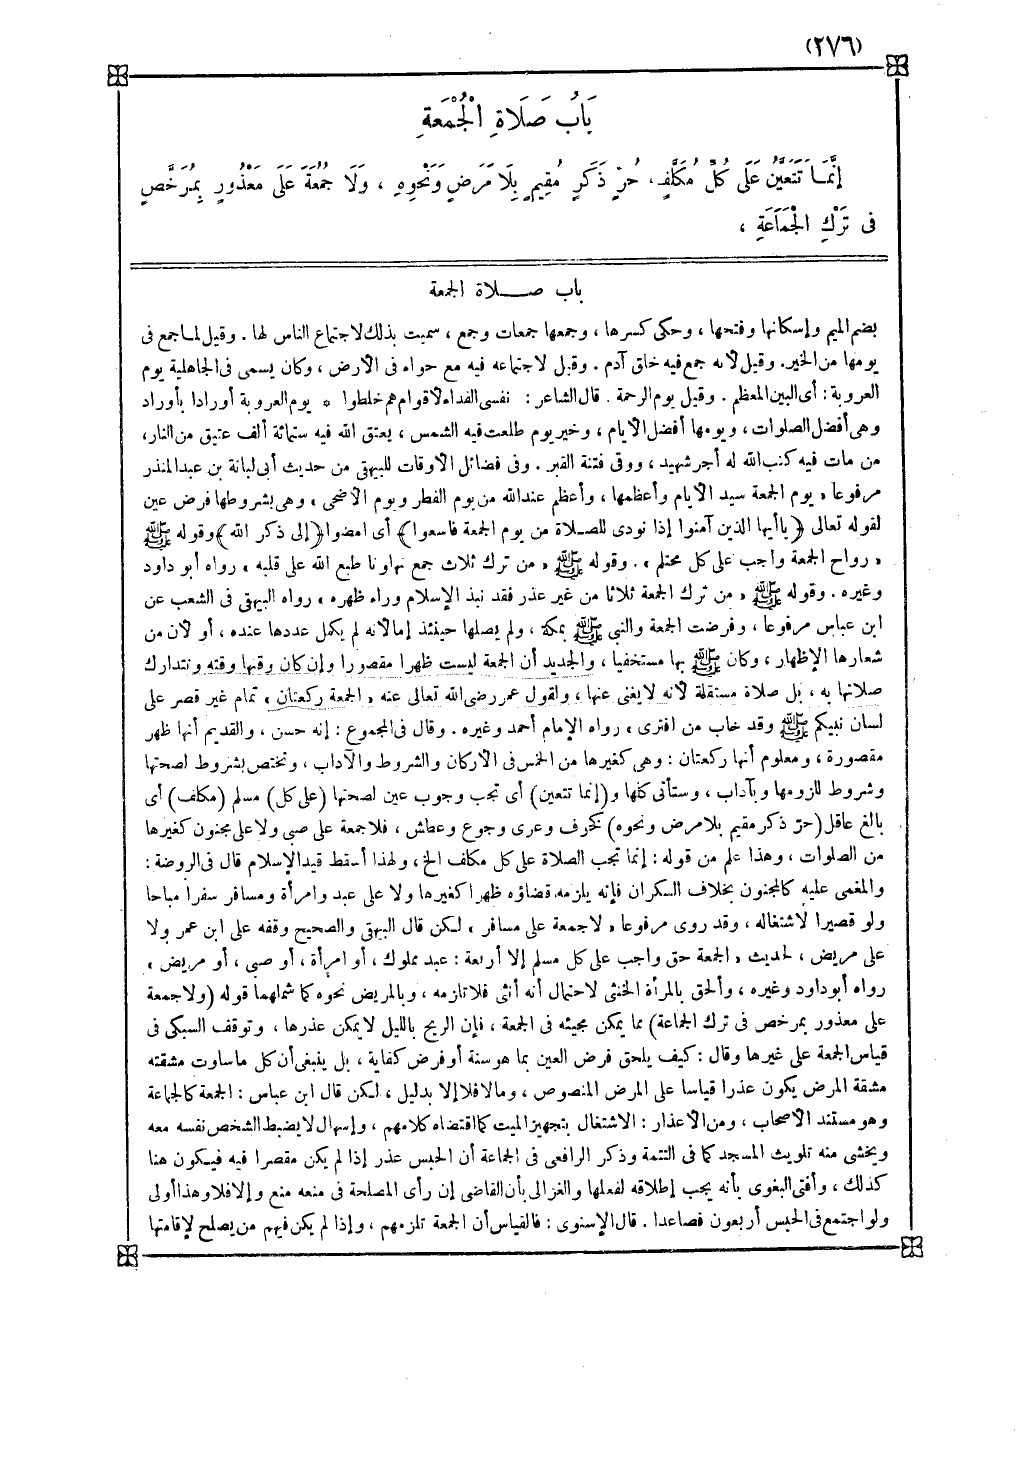 (٢٧٦)
بَابُ صَلَاةِ الْجُمْعَةِ
إِنَّمَا تَتَعَيَّنُ عَلَى كُلِّ مُكَلَّفٍ، حُرٍّ ذَكَرٍ مُقِيمٍ بِلَا مَرَضٍ وَنَحْوِهِ ، وَلَا جُمُعَةَ عَلَى مَعْذُورٍ بِمُرَخِّصٍ
فى تَرْكِ الْجَمَاعَةِ ،
باب صـــلاة الجمعة
بضم الميم وإسكانها وفتحها ، وحكى كسرها ، وجمعها جمعات وجمع ، سميت بذلك لاجتماع الناس لها . وقيل لما جمع فى
يومها من الخير. وقيل لأنه جمع فيه خلق آدم . وقيل لاجتماعه فيه مع حواء فى الأرض ، وكان يسمى فى الجاهلية يوم
العروبة : أى البين المعظم . وقيل يوم الرحمة . قال الشاعر : نفسى الفداء لأقوام هم خلطوا * يوم العروبة أورادا بأوراد
وهى أفضل الصلوات ، ويومها أفضل الأيام ، وخير يوم طلعت فيه الشمس ، يعتق الله فيه ستمائة ألف عتيق من النار،
من مات فيه كتب الله له أجر شهيد ، ووقى فتنة القبر . وفى فضائل الأوقات للبيهقى من حديث أبى لبانة بن عبد المنذر
مرفوعا « يوم الجمعة سيد الأيام وأعظمها ، وأعظم عند الله من يوم الفطر ويوم الأضحى » وهى بشروطها فرض عين
لقوله تعالى (يا أيها الذين آمنوا إذا نودى للصلاة من يوم الجمعة فاسعوا) أى امضوا (إلى ذكر الله) وقوله ﷺ
« رواح الجمعة واجب على كل محتلم » . وقوله ﷺ « من ترك ثلاث جمع تهاونا طبع الله على قلبه » رواه أبو داود
وغيره . وقوله ﷺ « من ترك الجمعة ثلاثا من غير عذر فقد نبذ الإسلام وراء ظهره » رواه البيهقى فى الشعب عن
ابن عباس مرفوعا ، وفرضت الجمعة والنبى ﷺ بمكة ، ولم يصلها حينئذ إما لأنه لم يكمل عددها عنده ، أو لأن من
شعارها الإظهار ، وكان ﷺ بها مستخفيا ، والجديد أن الجمعة ليست ظهرا مقصورا وإن كان وقتها وقته وتتدارك
صلاتها به ، بل صلاة مستقلة لأنه لا يغنى عنها ، ولقول عمر رضى الله تعالى عنه « الجمعة ركعتان » تمام غير قصر على
لسان نبيكم ﷺ وقد خاب من افترى » رواه الإمام أحمد وغيره . وقال فى المجموع : إنه حسن ، والقديم أنها ظهر
مقصورة ، ومعلوم أنها ركعتان : وهى كغيرها من الخمس فى الأركان والشروط والآداب ، وتختص بشروط لصحتها
وشروط للزومها وبآداب ، وستأتى كلها و(إنما تتعين) أى تجب وجوب عين لصحتها (على كل) مسلم (مكلف) أى
بالغ عاقل (حرّ ذكر مقيم بلا مرض ونحوه) كخوف وعرى وجوع وعطش ، فلا جمعة على صبى ولا على مجنون كغيرها
من الصلوات ، وهذا علم من قوله : إنما تجب الصلاة على كل مكلف الخ ، ولهذا أسقط قيد الإسلام قال فى الروضة :
والمغمى عليه كالمجنون بخلاف السكران فإنه يلزمه قضاؤه ظهرا كغيرها ولا على عبد وامرأة ومسافر سفرا مباحا
ولو قصيرا لاشتغاله ، وقد روى مرفوعا « لا جمعة على مسافر » لكن قال البيهقى والصحيح وقفه على ابن عمر ولا
على مريض ، لحديث « الجمعة حق واجب على كل مسلم إلا أربعة : عبد مملوك ، أو امرأة ، أو صبى ، أو مريض »
رواه أبو داود وغيره ، وألحق بالمرأة الخنثى لاحتمال أنه أنثى فلا تلزمه ، وبالمريض نحوه كما شملهما قوله (ولا جمعة
على معذور بمرخص فى ترك الجماعة) مما يمكن مجيئه فى الجمعة ، فإن الريح بالليل لا يمكن عذرها ، وتوقف السبكى فى
قياس الجمعة على غيرها وقال : كيف يلحق فرض العين بما هو سنة أو فرض كفاية ، بل ينبغى أن كل ما ساوت مشقته
مشقة المرض يكون عذرا قياسا على المرض المنصوص ، وما لا فلا إلا بدليل ، لكن قال ابن عباس : الجمعة كالجماعة
وهو مستند الأصحاب ، ومن الأعذار : الاشتغال بتجهيز الميت كما اقتضاه كلامهم ، وإسهال لا يضبط الشخص نفسه معه
ويخشى منه تلويث المسجد كما فى التتمة وذكر الرافعى فى الجماعة أن الحبس عذر إذا لم يكن مقصرا فيه فيكون هنا
كذلك ، وأفتى البغوى بأنه يجب إطلاقه لفعلها والغزالى بأن القاضى إن رأى المصلحة فى منعه منع وإلا فلا وهذا أولى
ولو اجتمع فى الحبس أربعون فصاعدا . قال الإسنوى : فالقياس أن الجمعة تلزمهم ، وإذا لم يكن فيهم من يصلح لإقامتها